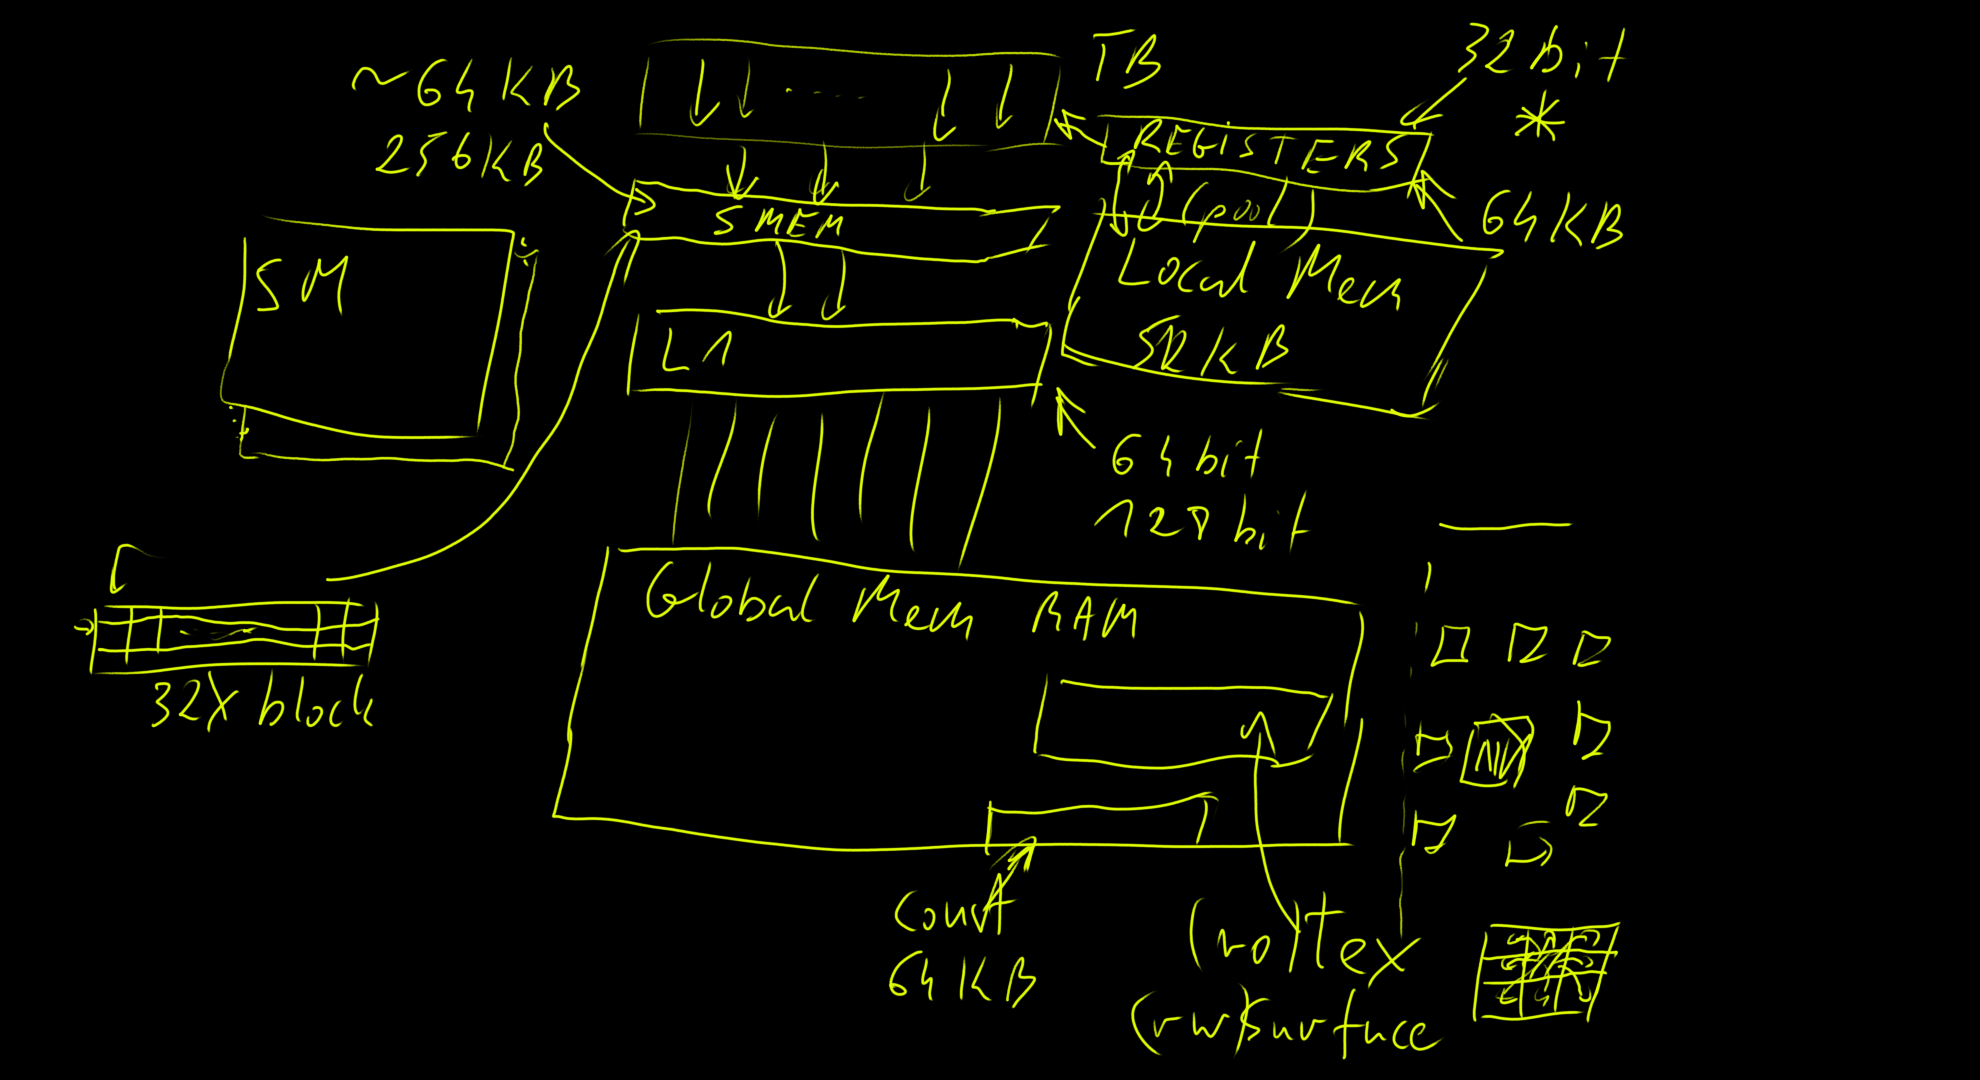 ~64KB
256KB
TB
32bit
*
REGISTERS
(pool)
64KB
SMEM
SM
Local Mem
512KB
L1
64bit
128bit
32x block
Global Mem RAM
const
64KB
(ro)tex
(rw)surface